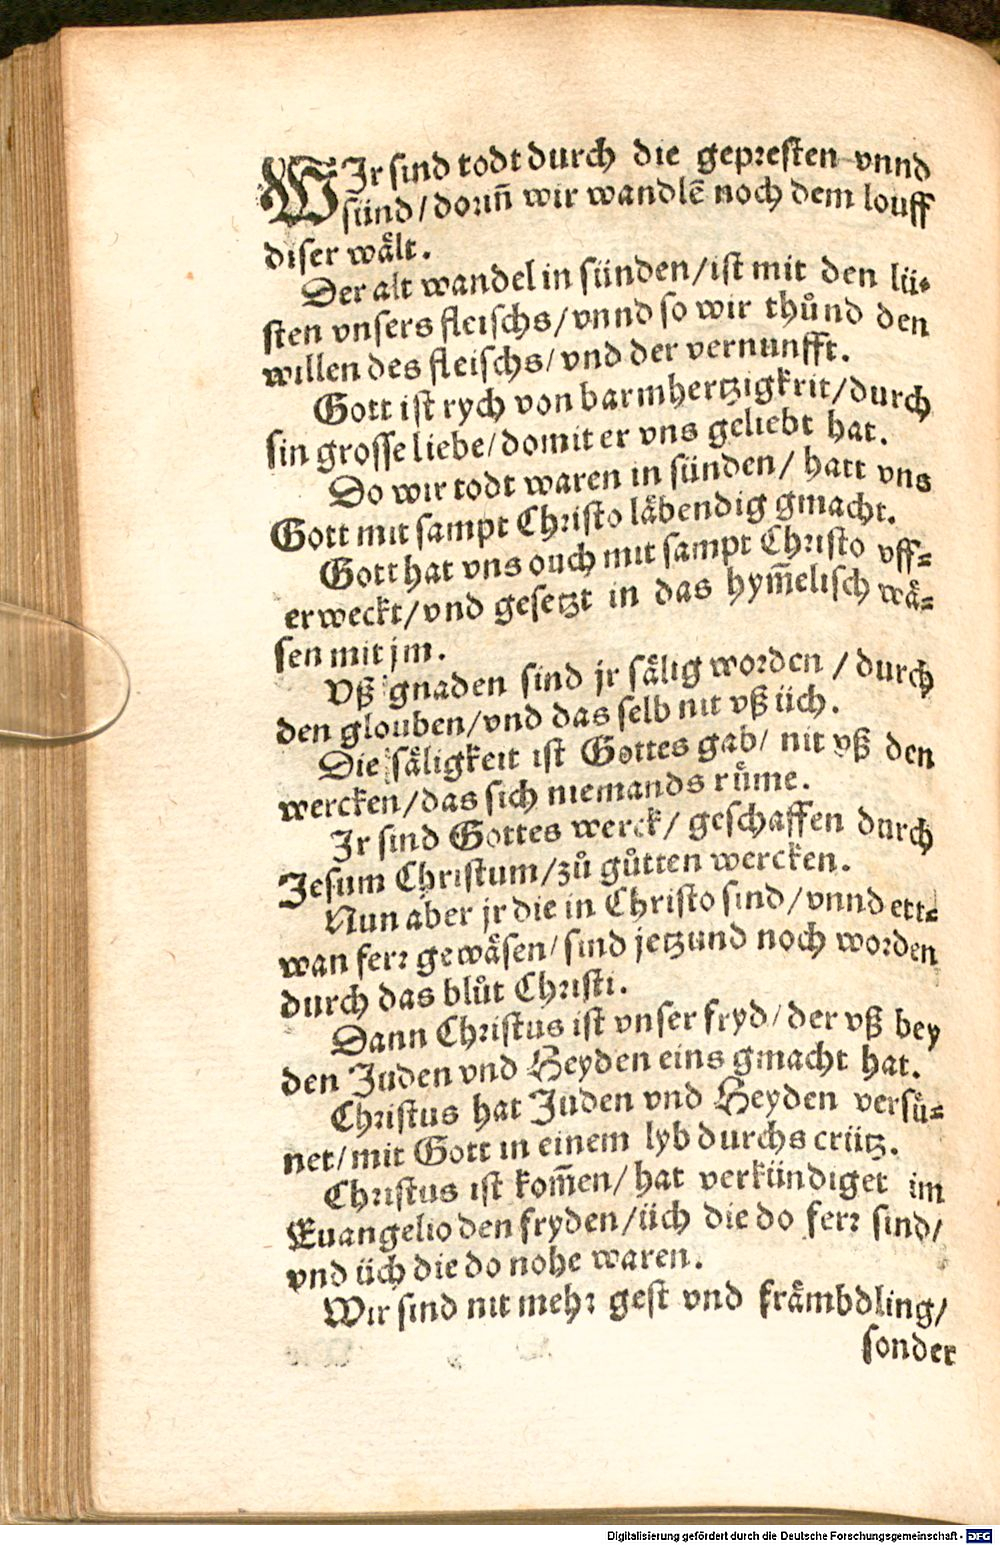 WIr sind todt durch die gepresten vnnd
sünd/dorin̄ wir wandlē noch dem louff
diser waͤlt.
Der alt wandel in sünden/ist mit den lü-
sten vnsers fleischs/vnnd so wir thuͦnd den
willen des fleischs/vnd der vernunfft.
Gott ist rych von barmhertzigkrit/durch
sin grosse liebe/domit er vns geliebt hat.
Do wir todt waren in sünden/ hatt vns
Gott mit sampt Christo laͤbendig gmacht.
Gott hat vns ouch mit sampt Christo vff-
erweckt/vnd gesetzt in das hym̄elisch waͤ-
sen mit jm.
Vß gnaden sind jr saͤlig worden / durch
den glouben/vnd das selb nit vß üch.
Die saͤligkeit ist Gottes gab/ nit vß den
wercken/das sich niemands ruͤme.
Ir sind Gottes werck/ geschaffen durch
Jesum Christum/zuͦ guͦtten wercken.
Nun aber jr die in Christo sind/vnnd ett-
wan ferr gewaͤsen/sind jetzund noch worden
durch das bluͦt Christi.
Dann Christus ist vnser fryd/der vß bey
den Juden vnd Heyden eins gmacht hat.
Christus hat Juden vnd Heyden versuͤ-
net/mit Gott in einem lyb durchs crütz.
Christus ist kom̄en/hat verkündiget im
Euangelio den fryden/üch die do ferr sind/
vnd üch die do nohe waren.
Wir sind nit mehr gest vnd fraͤmbdling/
sonder
Digitalisierung gefördert durch die Deutsche Forschungsgemeinschaft - DFG